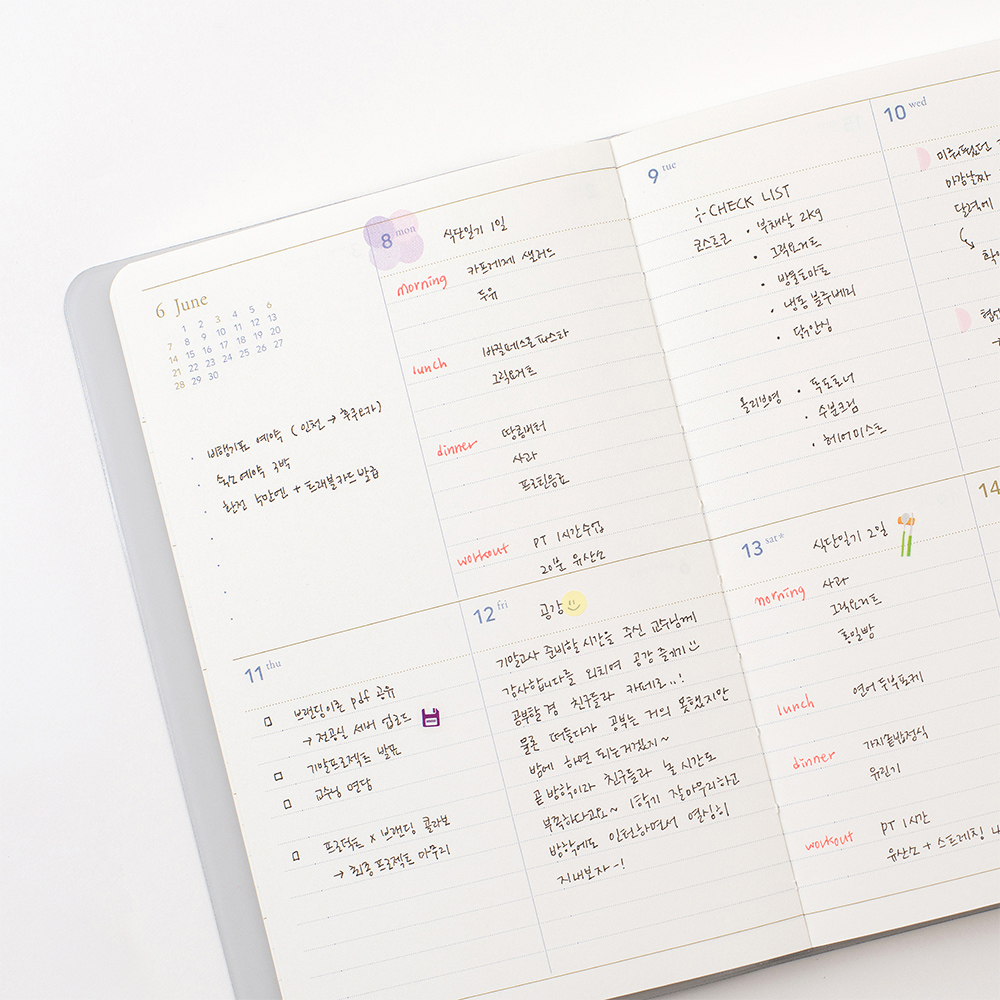 6 June
1 2 3 4 5 6
7 8 9 10 11 12 13
14 15 16 17 18 19 20
21 22 23 24 25 26 27
28 29 30
· 비행기표 예약 ( 인천 → 후쿠오카)
· 숙소예약 3박
· 환전 + 트래블카드 발급
8 mon 식단일기 1일
morning 카프레제 샐러드
두유
lunch 바질페스토 파스타
그릭요거트
dinner 땅콩버터
사과
프로틴음료
workout PT 1시간수업
20분 유산소
9 tue
CHECK LIST
코스트코 · 부채살 2kg
· 그릭요거트
· 방울토마토
· 냉동 블루베리
· 닭안심
올리브영 · 독도토너
· 수분크림
· 헤어미스트
10 wed
마감날짜
달력에
11 thu
브랜딩이론 pdf 공유
→ 전공실 서버 업로드
기말프로젝트 발표
교수님 면담
프로덕트 x 브랜딩 콜라보
→ 최종 프로젝트 마무리
12 fri 공강
기말고사 준비할 시간을 주신 교수님께
감사합니다를 외치며 공강 즐기기
공부할 겸 친구들과 카페로..!
물론 떠들다가 공부는 거의 못했지만
밤에 하면 되는거겠지~
곧 방학이라 친구들과 놀 시간도
부족하다고요~ 1학기 잘마무리하고
방학에도 인턴하면서 열심히
지내보자~!
13 sat* 식단일기 2일
morning 사과
그릭요거트
통밀빵
lunch 연어 두부포케
dinner 가지솥밥정식
유린기
workout PT 1시간
유산소 + 스트레칭
14